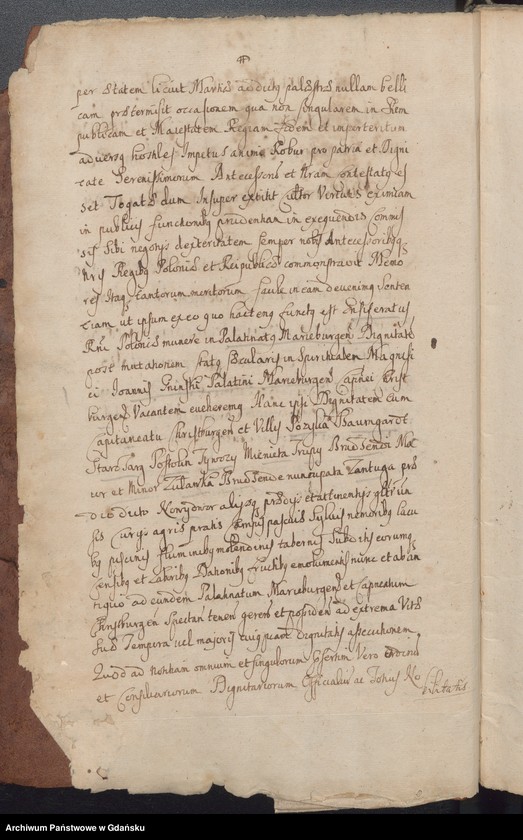 per ætatem licuit Martis addictus palæstræ nullam belli
cam prætermisit occasionem qua non singularem in Rem
publicam et Maiestatem Regiam fidem et imperterritum
adversus hostiles Impetus animi Robur pro patria et Digni
tate Serenissimorum Antecessorum et contestatus es
set Togatus dum Insuper cultor Virtutis eximiam
in publicis functionibus prudentiam in exequendis Commis
sis sibi negotys dexteritatem semper nobis Antecessoribusq
nris Regibus Poloniæ et Reipublicæ commonstravit Memo
res Itaq tantorum meritorum facile in eam devenimus senten
tiam ut ipsum ex eo quo hactenus functus est Ensiferatus
Regni Poloniæ munere in Palatinatus Marieburgen Dignitate
post mutationem status sæcularis in Spiritualem Magnifi
ci Joannis Gninski Palatini Marieburgen Capnei Christ
burgen Vacantem eveheremus Hanc ipsi Dignitatem cum
Capitaneatu Christburgen et Villis Baumgardt
Stary Targ Postolin Tywozy Mienieta Trupy Brudsende Ma
ior et Minor Zulawka Brudsende nuncupata
dictæ Nowydwor alysq prædys et attinentys
sis Curys agris pratis campis pascuis sylvis nemoribus lacu
bus piscinis fluminibus molendinis tabernis subditis eorumq
censibus et laboribus Dationibus fructibus emolumentis nunc et ab an
tiquo ad eundem Palatinatum Marieburgen et Capneatum
Christburgen spectan tenen geren et possiden ad extrema Vitæ
suæ tempora vel majoris cuiuspiam dignitatis assecutionem
Quod ad notitiam omnium et singulorum præsertim Vero
et Consiliariorum Dignitariorum Officialium ac Totius No
bilitatis
Archiwum Państwowe w Gdańsku